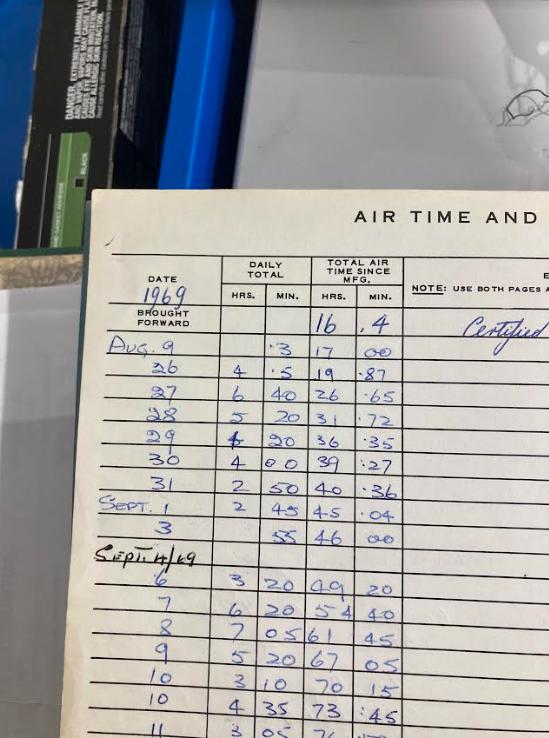 DANGER. EXTREMELY FLAMMABLE
BLACK
AIR TIME AND
DATE
DAILY TOTAL
TOTAL AIR TIME SINCE MFG.
E
NOTE: USE BOTH PAGES A
1969
HRS. MIN. HRS. MIN.
BROUGHT FORWARD 16 .4 Certified
Aug. 9 .3 17 00
26 4 .5 19 .87
27 6 40 26 .65
28 5 20 31 .72
29 20 36 .35
30 4 00 39 :27
31 2 50 40 .36
SEPT. 1 2 45 45 .04
3 55 46 00
SEPT. 4/69
6 3 20 49 20
7 6 20 54 40
8 7 05 61 45
9 5 20 67 05
10 3 10 70 15
10 4 35 73 :45
11 3 05